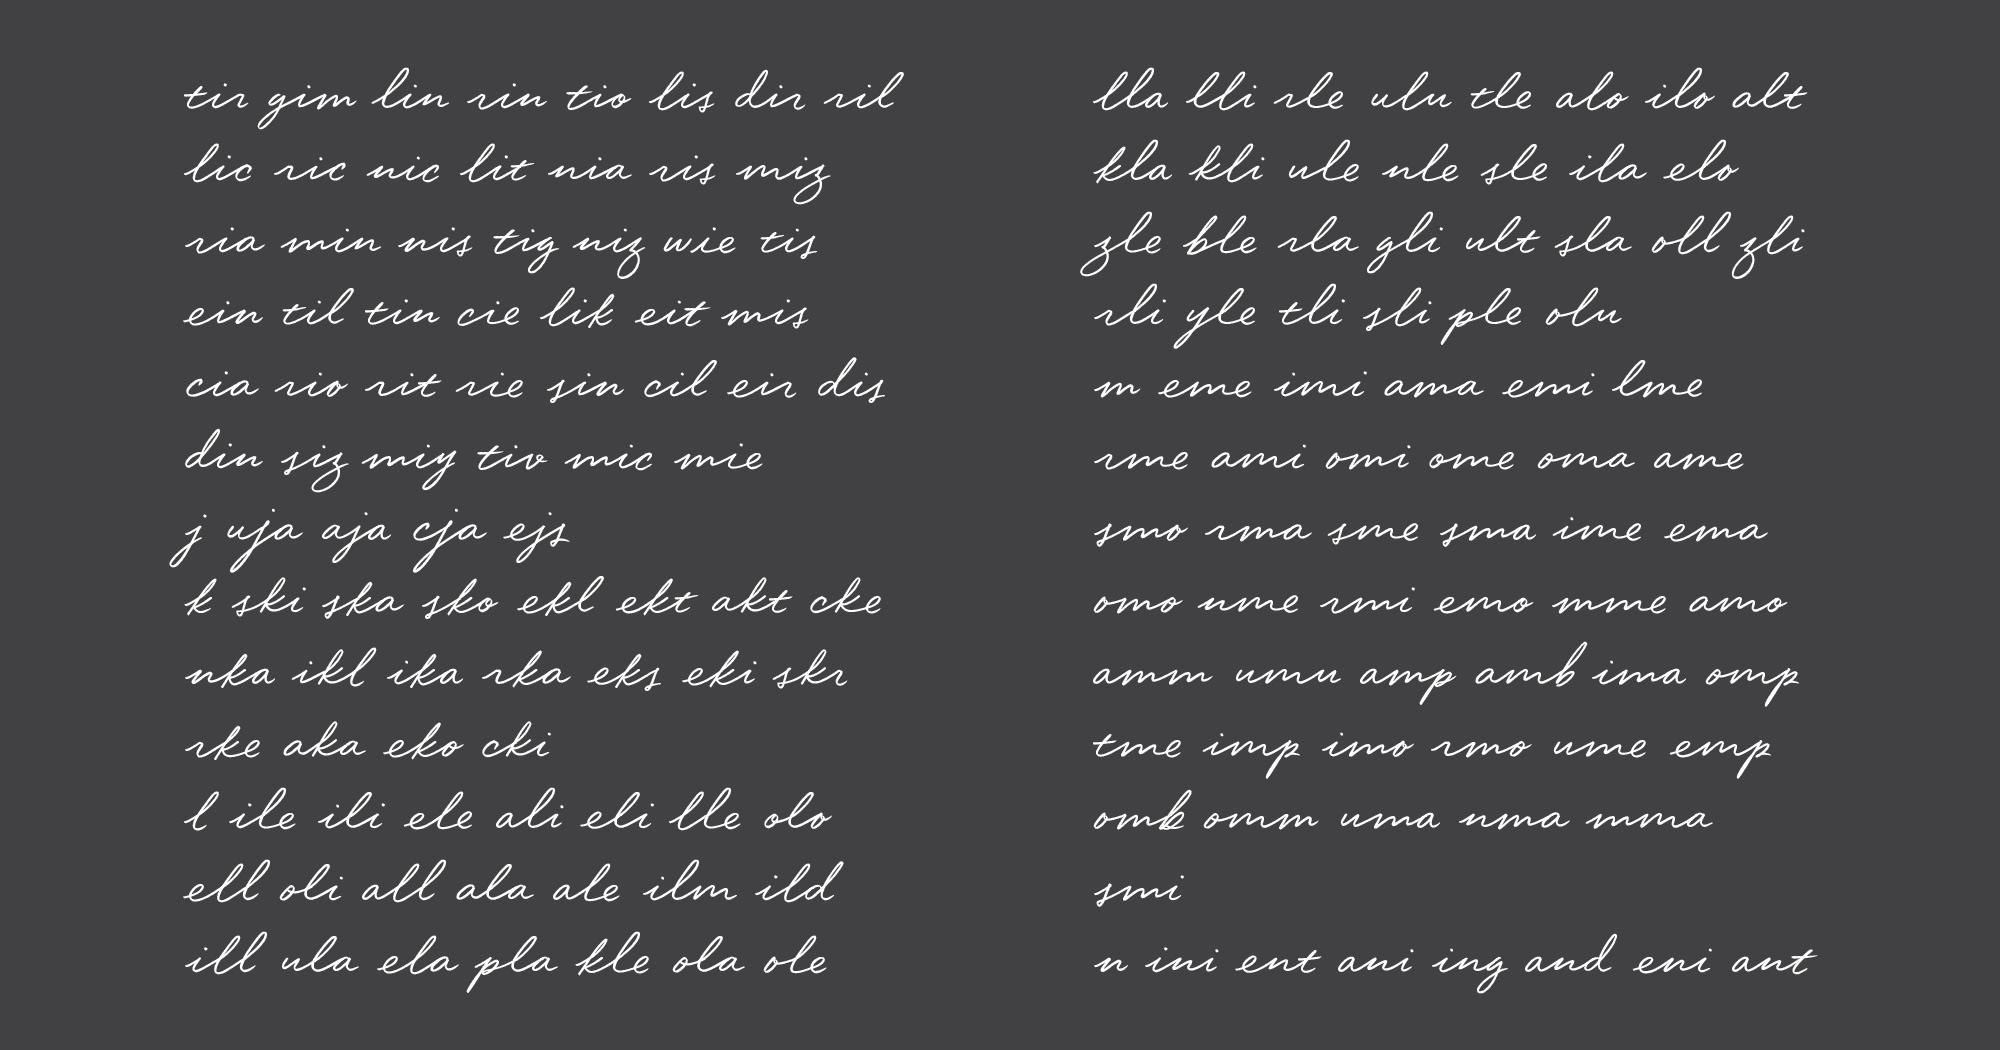 tir gim lin rin tio lis dir ril
lic ric nic lit nia ris miz
ria min nis tig niz wie tis
ein til tin cie lik eit mis
cia rio rit rie sin cil eir dis
din siz miy tiv mic mie
j uja aja cja ejs
k ski ska sko ekl ekt akt cke
nka ikl ika rka eks eki skr
rke aka eko cki
l ile ili ele ali eli lle olo
ell oli all ala ale ilm ild
ill ula ela pla kle ola ole
lla lli rle ulu tle alo ilo alt
kla kli ule nle sle ila elo
zle ble rla gli ult sla oll zli
rli yle tli sli ple olu
m eme imi ama emi lme
rme ami omi ome oma ame
smo rma sme sma ime ema
omo nme rmi emo mme amo
amm umu amp amb ima omp
tme imp imo rmo ume emp
omb omm uma nma mma
smi
n ini ent ani ing and eni ant